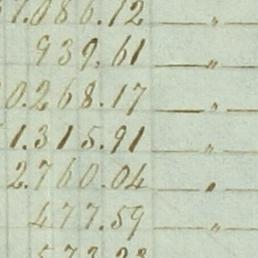 7.086.12 — " —
939.61 — " —
0.268.17 — " —
1.315.91 — " —
2.760.04 — " —
477.59 — " —
573.28